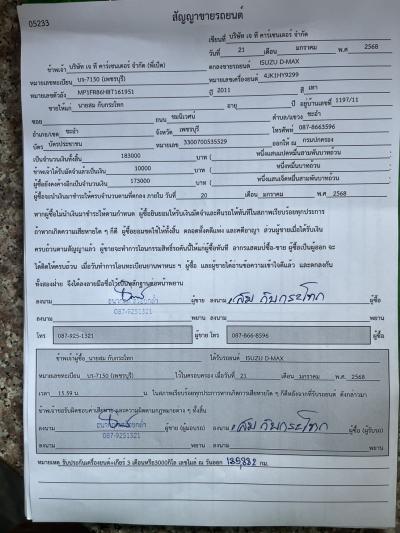 05233
สัญญาขายรถยนต์
เขียนที่ บริษัท เจ ที คาร์เซนเตอร์ จำกัด
วันที่ 21 เดือน มกราคม พ.ศ 2568
ข้าพเจ้า บริษัท เจ ที คาร์เซนเตอร์ จำกัด (พี่เปิ้ล) ตกลงขายรถยนต์ ISUZU D-MAX
หมายเลขทะเบียน บร-7150 (เพชรบุรี) หมายเลขเครื่องยนต์ 4JK1HY9299
หมายเลขตัวถัง MP1FR86HBT161951 ปี 2011 สี เทา
ขายให้แก่ นายสม กับกระโทก อายุ ปี อยู่บ้านเลขที่ 1197/11
ซอย ถนน ชมนิเวศน์ ตำบล/แขวง ชะอำ
อำเภอ/เขต ชะอำ จังหวัด เพชรบุรี โทรศัพท์ 087-8663596
บัตร บัตรประชาชน หมายเลข 3300700535529 ออกให้ ณ กรมปกครอง
เป็นจำนวนเงินทั้งสิ้น 183000 บาท ( หนึ่งแสนแปดหมื่นสามพันบาทถ้วน
ข้าพเจ้าได้รับมัดจำแล้วเป็นเงิน 10000 บาท ( หนึ่งหมื่นบาทถ้วน
ผู้ซื้อยังคงค้างอีกเป็นจำนวนเงิน 173000 บาท ( หนึ่งแสนเจ็ดหมื่นสามพันบาทถ้วน
ผู้ซื้อจะนำเงินมาชำระให้ครบจำนวนตามที่ตกลง ภายใน วันที่ 20 เดือน มกราคม พ.ศ 2568
หากผู้ซื้อไม่นำเงินมาชำระให้ตามกำหนด ผู้ซื้อยินยอมให้ริบเงินมัดจำและคืนรถให้ทันทีในสภาพเรียบร้อยทุกประการ
ถ้าหากเกิดความเสียหายใด ๆ ก็ดี ผู้ซื้อยอมชดใช้ให้ทั้งสิ้น ตลอดทั้งคดีแพ่ง และคดีอาญา ส่วนผู้ขายเมื่อได้รับเงิน
ครบถ้วนตามสัญญาแล้ว ผู้ขายจะทำการโอนกรรมสิทธิ์รถคันนี้ให้แก่ผู้ซื้อทันที อากรแสตมป์ซื้อ-ขาย ผู้ซื้อเป็นผู้ออก จะ
ได้คิดให้ครบถ้วน เมื่อวันทำการโอนทะเบียนยานพาหนะ ฯ ผู้ซื้อ และผู้ขายได้อ่านข้อความเข้าใจดีแล้ว และตกลงกัน
ทั้งสองฝ่าย จึงได้ลงลายมือชื่อไว้เป็นหลักฐานต่อหน้าพยาน
ลงนาม 087-9251321 ผู้ขาย ลงนาม สม กับกระโทก ผู้ซื้อ
ลงนาม พยาน ลงนาม พยาน
โทร 087-925-1321 ผู้ขาย โทร 087-866-8596 ผู้ซื้อ
ข้าพเจ้าผู้ซื้อ นายสม กับกระโทก ได้รับรถยนต์ ISUZU D-MAX
หมายเลขทะเบียน บร-7150 (เพชรบุรี) ไว้ในครอบครอง เมื่อวันที่ 21 เดือน มกราคม พ.ศ. 2568
เวลา 15.59 น. ในสภาพเรียบร้อยทุกประการหากเกิดการเสียหายใด ๆ ก็ดีหลังจากที่รับรถยนต์ ดังกล่าวมา
ข้าพเจ้าขอรับผิดชอบค่าเสียหาย และความผิดตามกฎหมายต่าง ๆ ทั้งสิ้น
ลงนาม 087-9251321 ผู้ขาย (ผู้มอบรถ) ลงนาม สม กับกระโทก ผู้ซื้อ (ผู้รับรถ)
ลงนาม พยาน ลงนาม พยาน
หมายเหตุ รับประกันเครื่องยนต์+เกียร์ 3 เดือนหรือ3000กิโล เลขไมล์ ณ วันออก กม.